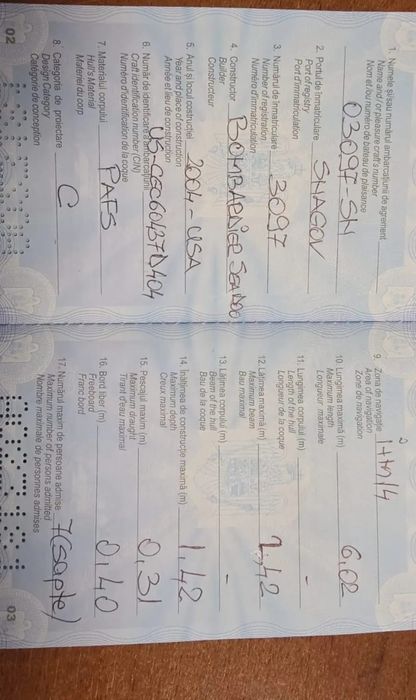 1. Numele și/sau numărul ambarcațiunii de agrement
Name and / or pleasure craft's number
Nom et /ou numéro de bateau de plaisance
03097-SN
2. Portul de înmatriculare
Port of registry
Port d'immatriculation
SNAGOV
3. Numărul de înmatriculare 3097
Number of registration
Numéro d'immatriculation
4. Constructor BOMBARDIER
Builder
Constructeur
5. Anul și locul construcției 2004 - USA
Year and place of construction
Année et lieu de construction
6. Număr de identificare a ambarcațiunii
Craft identification number (CIN)
Numéro d'identification de la coque
7. Materialul corpului PAFS
Hull's Material
Materiel du corp
8. Categoria de proiectare C
Design Category
Catégorie de conception
02
9. Zona de navigație
Area of navigation
Zone de navigation
10. Lungimea maximă (m) 6,02
Maximum length
Longueur maximale
11. Lungimea corpului (m) -
Length of the hull
Longueur de la coque
12. Lățimea maximă (m) 2,42
Maximum beam
Bau maximal
13. Lățimea corpului (m) -
Beam of the hull
Bau de la coque
14. Înălțimea de construcție maximă (m) 1,42
Maximum depth
Creux maximal
15. Pescajul maxim (m) 0,31
Maximum draught
Tirant d'eau maximal
16. Bord liber (m) 0,40
Freeboard
Franc bord
17. Numărul maxim de persoane admise 7 (șapte)
Maximum number of persons admitted
Nombre maximale de personnes admises
03